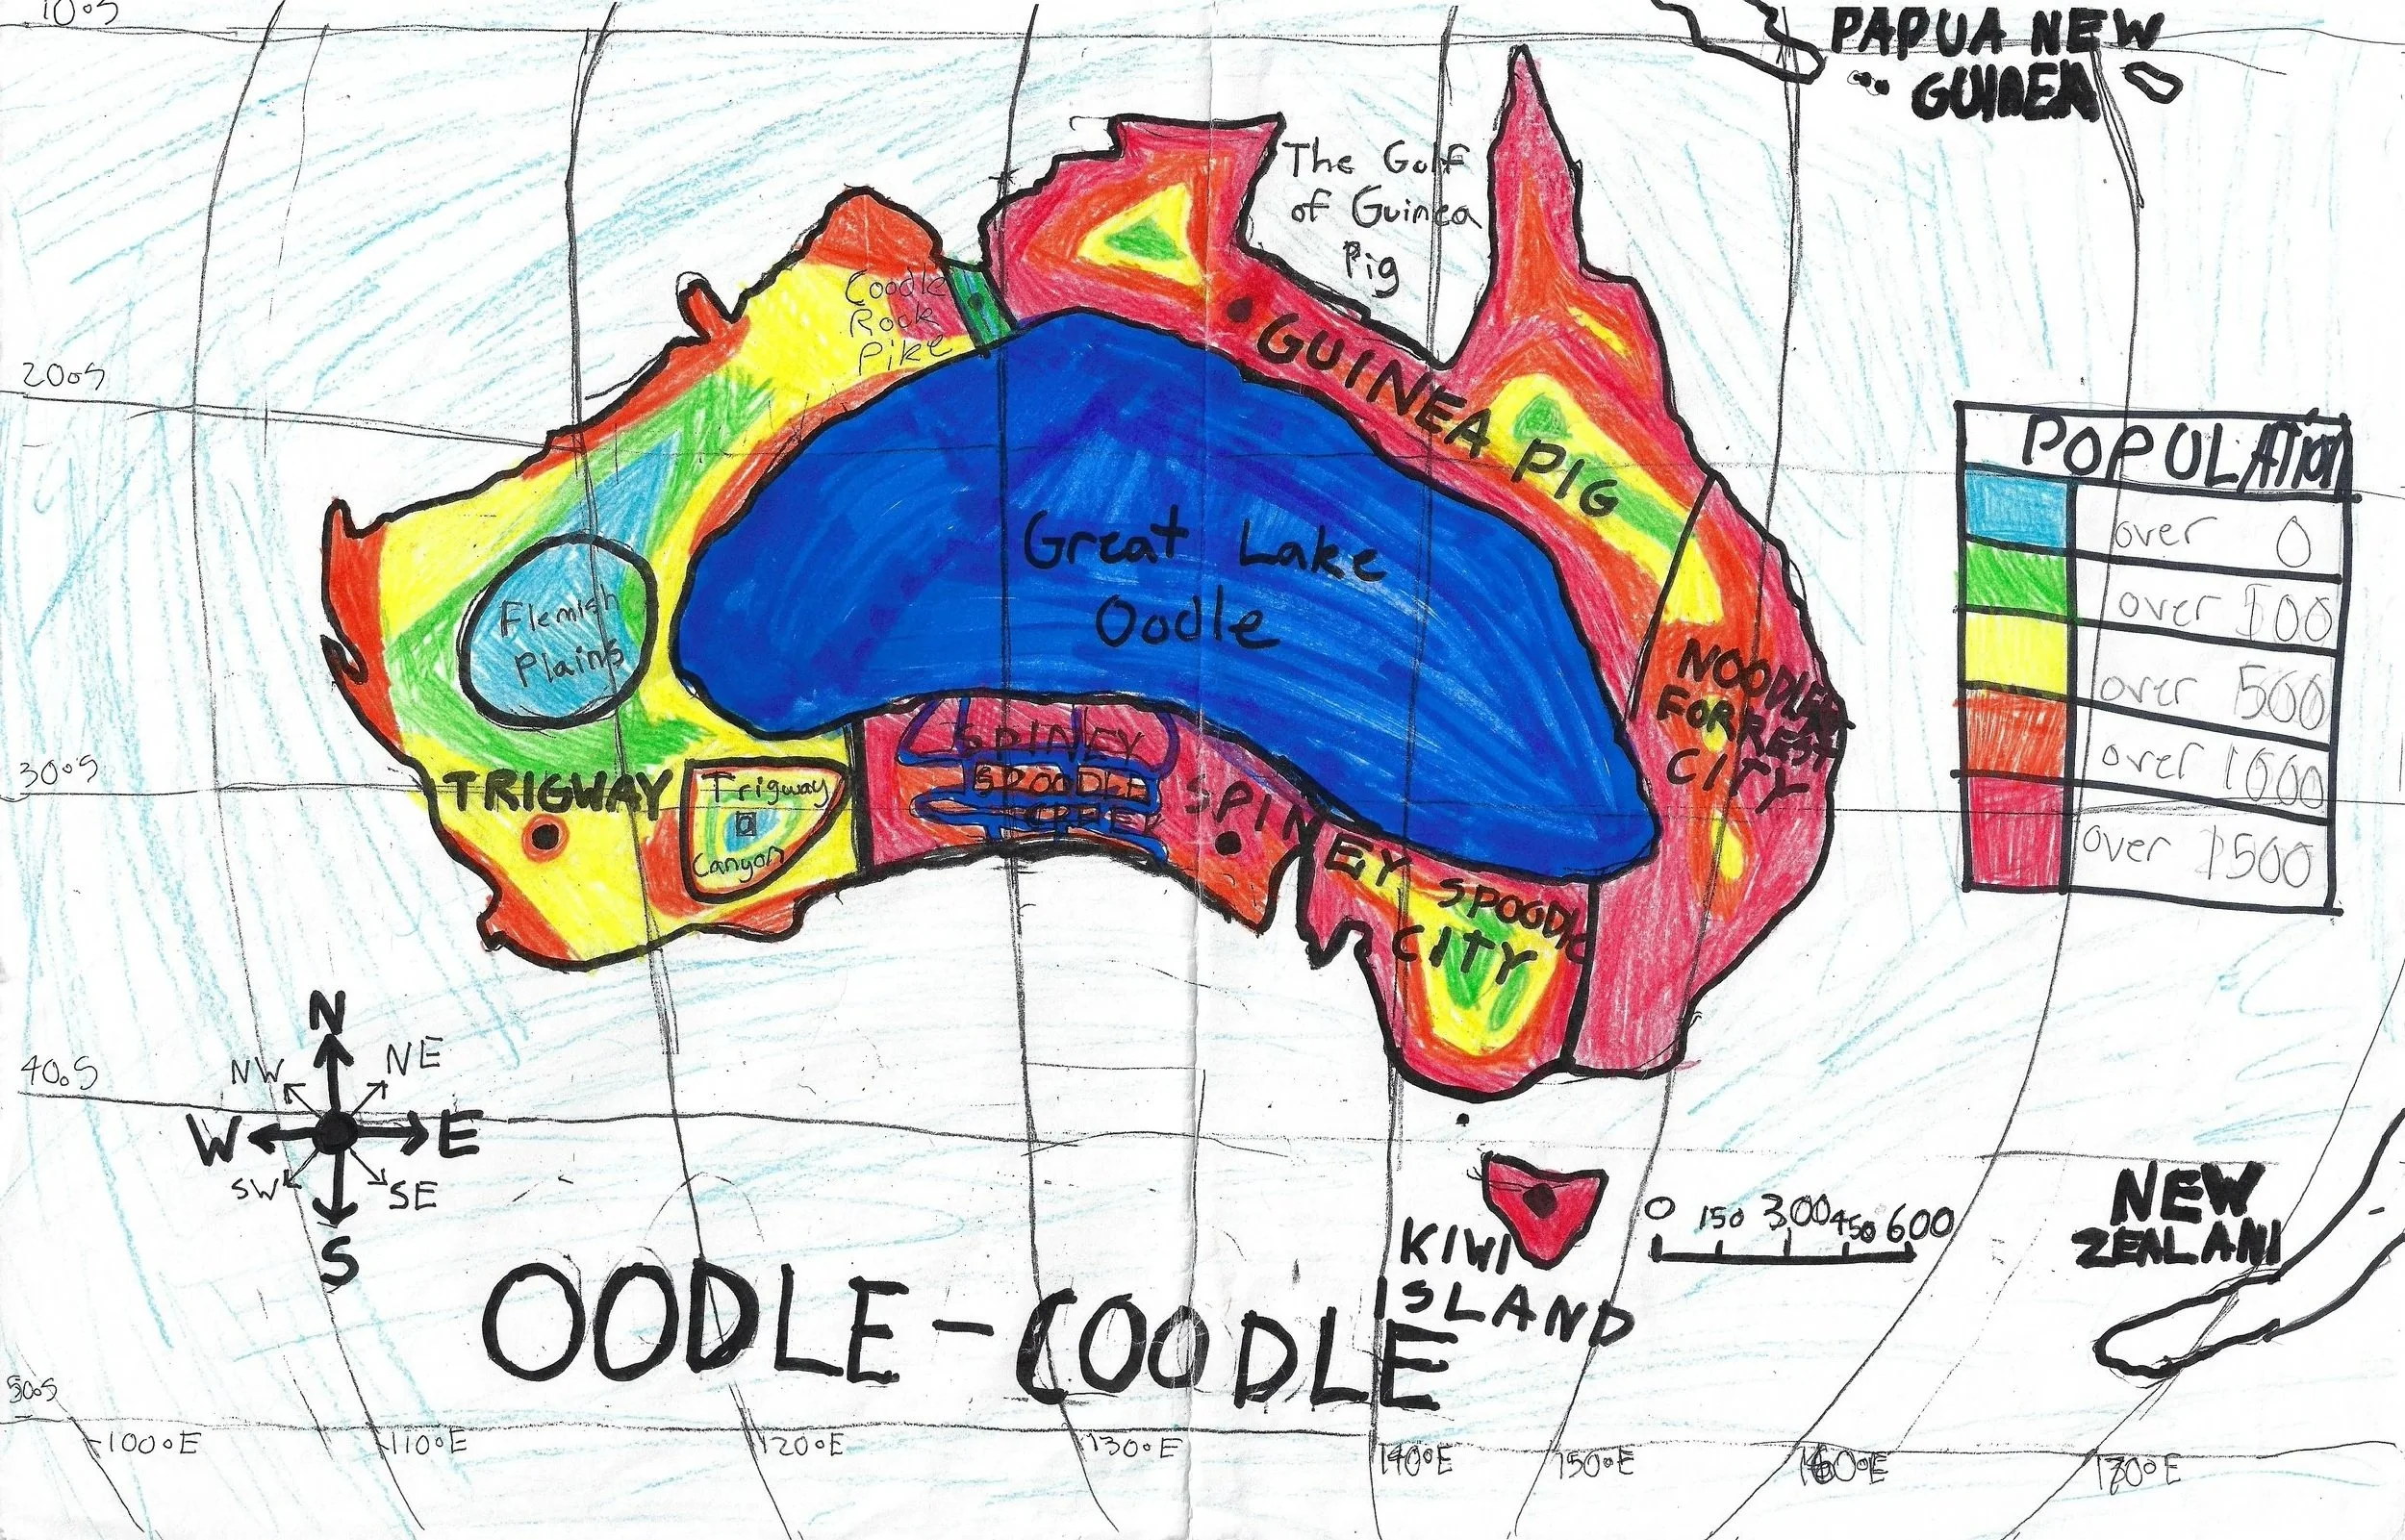 10.S
PAPUA NEW
GUINEA
The Golf
of Guinea
Pig
Coodle
Rock
Pike
20oS
GUINEA PIG
POPULATION
over 0
over 100
over 500
over 1000
over 1500
Great Lake
Oodle
Flemish
Plains
NOODLE
FORREST
CITY
30oS
TRIGWAY
Trigway
Canyon
SPINEY
SPOODLE
CREEK
SPINEY SPOODLE
CITY
N
NW NE
W E
SW SE
S
40.S
KIWI
ISLAND
0 150 300 450 600
NEW
ZEALAND
OODLE-COODLE
50.S
100°E 110°E 120°E 130°E 140°E 150°E 160°E 170°E